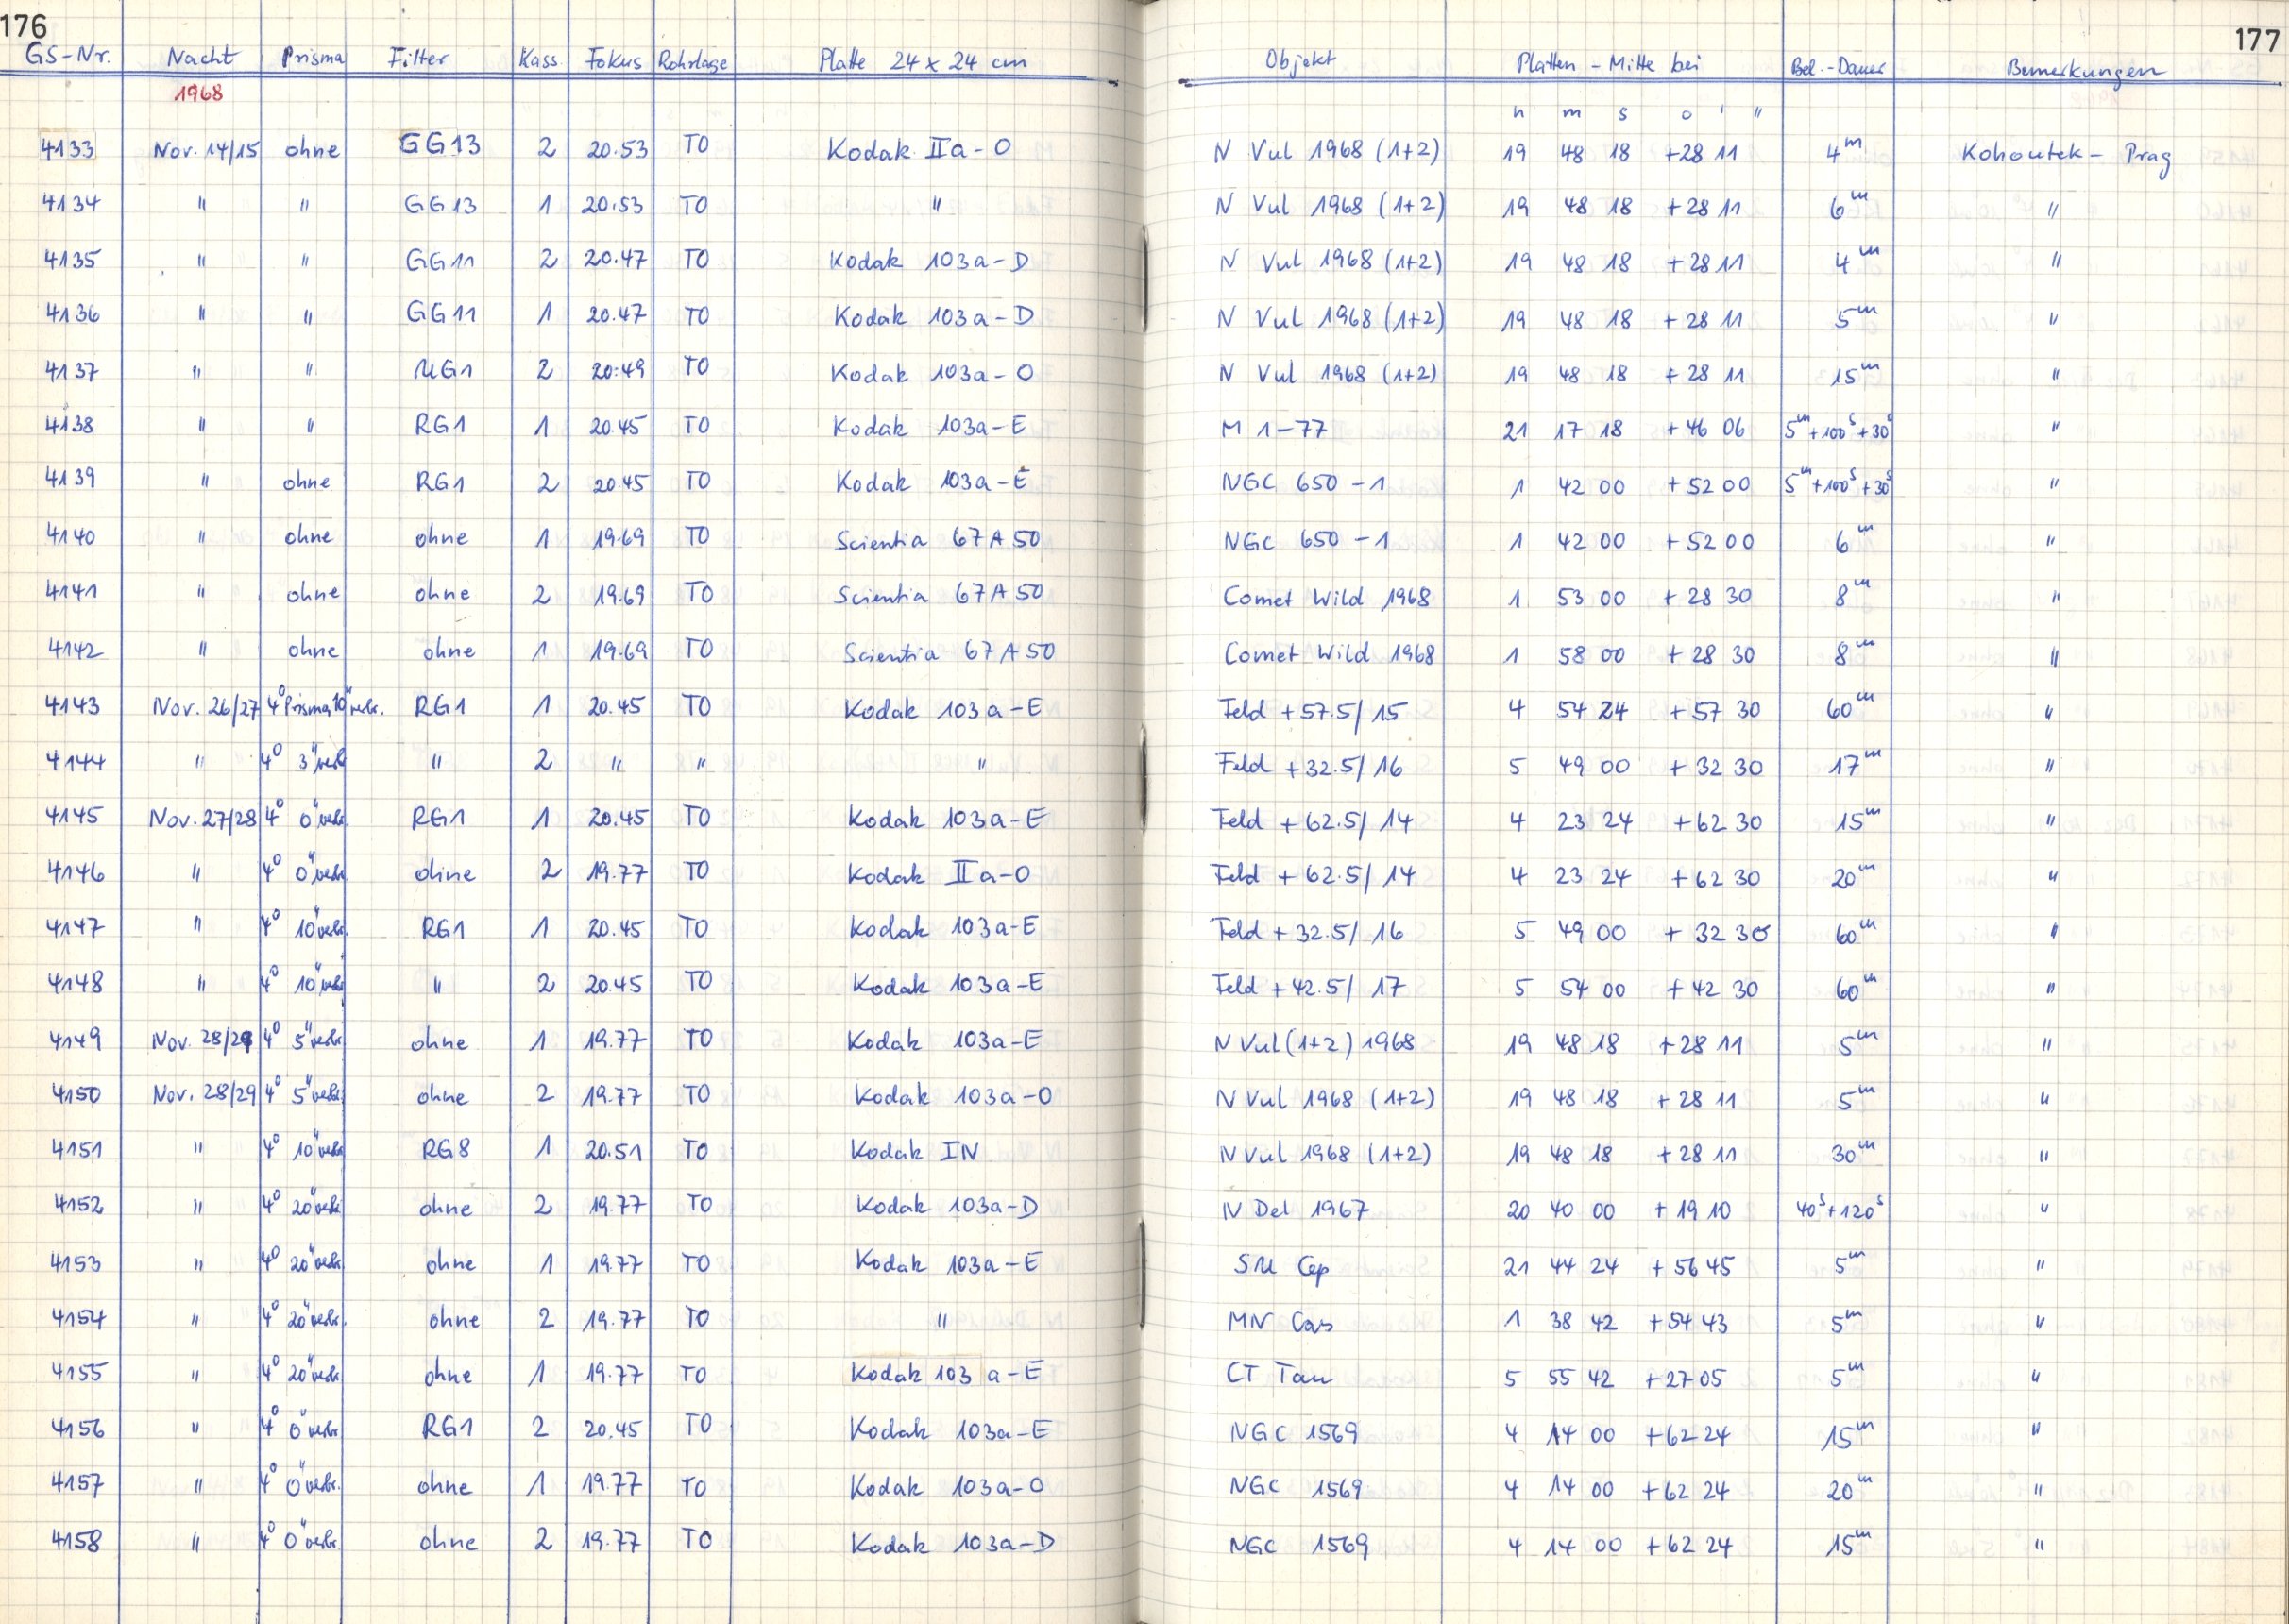 176 177
GS-Nr. Nacht Prisma Filter Kass. Fokus Rohrlage Platte 24 x 24 cm Objekt Platten - Mitte bei Bel.-Dauer Bemerkungen
1968
h m s o ' "
4133 Nov. 14/15 ohne GG13 2 20.53 TO Kodak IIa-O N Vul 1968 (1+2) 19 48 18 +28 11 4m Kohoutek - Prag
4134 " " GG13 1 20.53 TO " N Vul 1968 (1+2) 19 48 18 +28 11 6m "
4135 " " GG11 2 20.47 TO Kodak 103a-D N Vul 1968 (1+2) 19 48 18 +28 11 4m "
4136 " " GG11 1 20.47 TO Kodak 103a-D N Vul 1968 (1+2) 19 48 18 +28 11 5m "
4137 " " UG1 2 20.49 TO Kodak 103a-O N Vul 1968 (1+2) 19 48 18 +28 11 15m "
4138 " " RG1 1 20.45 TO Kodak 103a-E M 1-77 21 17 18 +46 06 5m+100s+30s "
4139 " ohne RG1 2 20.45 TO Kodak 103a-E NGC 650-1 1 42 00 +52 00 5m+100s+30s "
4140 " ohne ohne 1 19.69 TO Scientia 67 A 50 NGC 650-1 1 42 00 +52 00 6m "
4141 " ohne ohne 2 19.69 TO Scientia 67 A 50 Comet Wild 1968 1 53 00 +28 30 8m "
4142 " ohne ohne 1 19.69 TO Scientia 67 A 50 Comet Wild 1968 1 58 00 +28 30 8m "
4143 Nov. 26/27 4° Prisma 10" verbr. RG1 1 20.45 TO Kodak 103a-E Feld +57.5/15 4 54 24 +57 30 60m "
4144 " 4° 3" verb " 2 " " " Feld +32.5/16 5 49 00 +32 30 17m "
4145 Nov. 27/28 4° 0" verbr. RG1 1 20.45 TO Kodak 103a-E Feld +62.5/14 4 23 24 +62 30 15m "
4146 " 4° 0" verbr. ohne 2 19.77 TO Kodak IIa-O Feld +62.5/14 4 23 24 +62 30 20m "
4147 " 4° 10" verbr. RG1 1 20.45 TO Kodak 103a-E Feld +32.5/16 5 49 00 +32 30 60m "
4148 " 4° 10" verbr " 2 20.45 TO Kodak 103a-E Feld +42.5/17 5 54 00 +42 30 60m "
4149 Nov. 28/29 4° 5" verbr. ohne 1 19.77 TO Kodak 103a-E N Vul (1+2) 1968 19 48 18 +28 11 5m "
4150 Nov. 28/29 4° 5" verbr. ohne 2 19.77 TO Kodak 103a-O N Vul 1968 (1+2) 19 48 18 +28 11 5m "
4151 " 4° 10" verbr RG8 1 20.51 TO Kodak IN N Vul 1968 (1+2) 19 48 18 +28 11 30m "
4152 " 4° 20" verbr ohne 2 19.77 TO Kodak 103a-D N Del 1967 20 40 00 +19 10 40s+120s "
4153 " 4° 20" verbr. ohne 1 19.77 TO Kodak 103a-E SU Cep 21 44 24 +56 45 5m "
4154 " 4° 20" verbr. ohne 2 19.77 TO " MN Cas 1 38 42 +54 43 5m "
4155 " 4° 20" verbr. ohne 1 19.77 TO Kodak 103 a-E CT Tau 5 55 42 +27 05 5m "
4156 " 4° 0" verbr RG1 2 20.45 TO Kodak 103a-E NGC 1569 4 14 00 +62 24 15m "
4157 " 4° 0" verbr. ohne 1 19.77 TO Kodak 103a-O NGC 1569 4 14 00 +62 24 20m "
4158 " 4° 0" verbr. ohne 2 19.77 TO Kodak 103a-D NGC 1569 4 14 00 +62 24 15m "